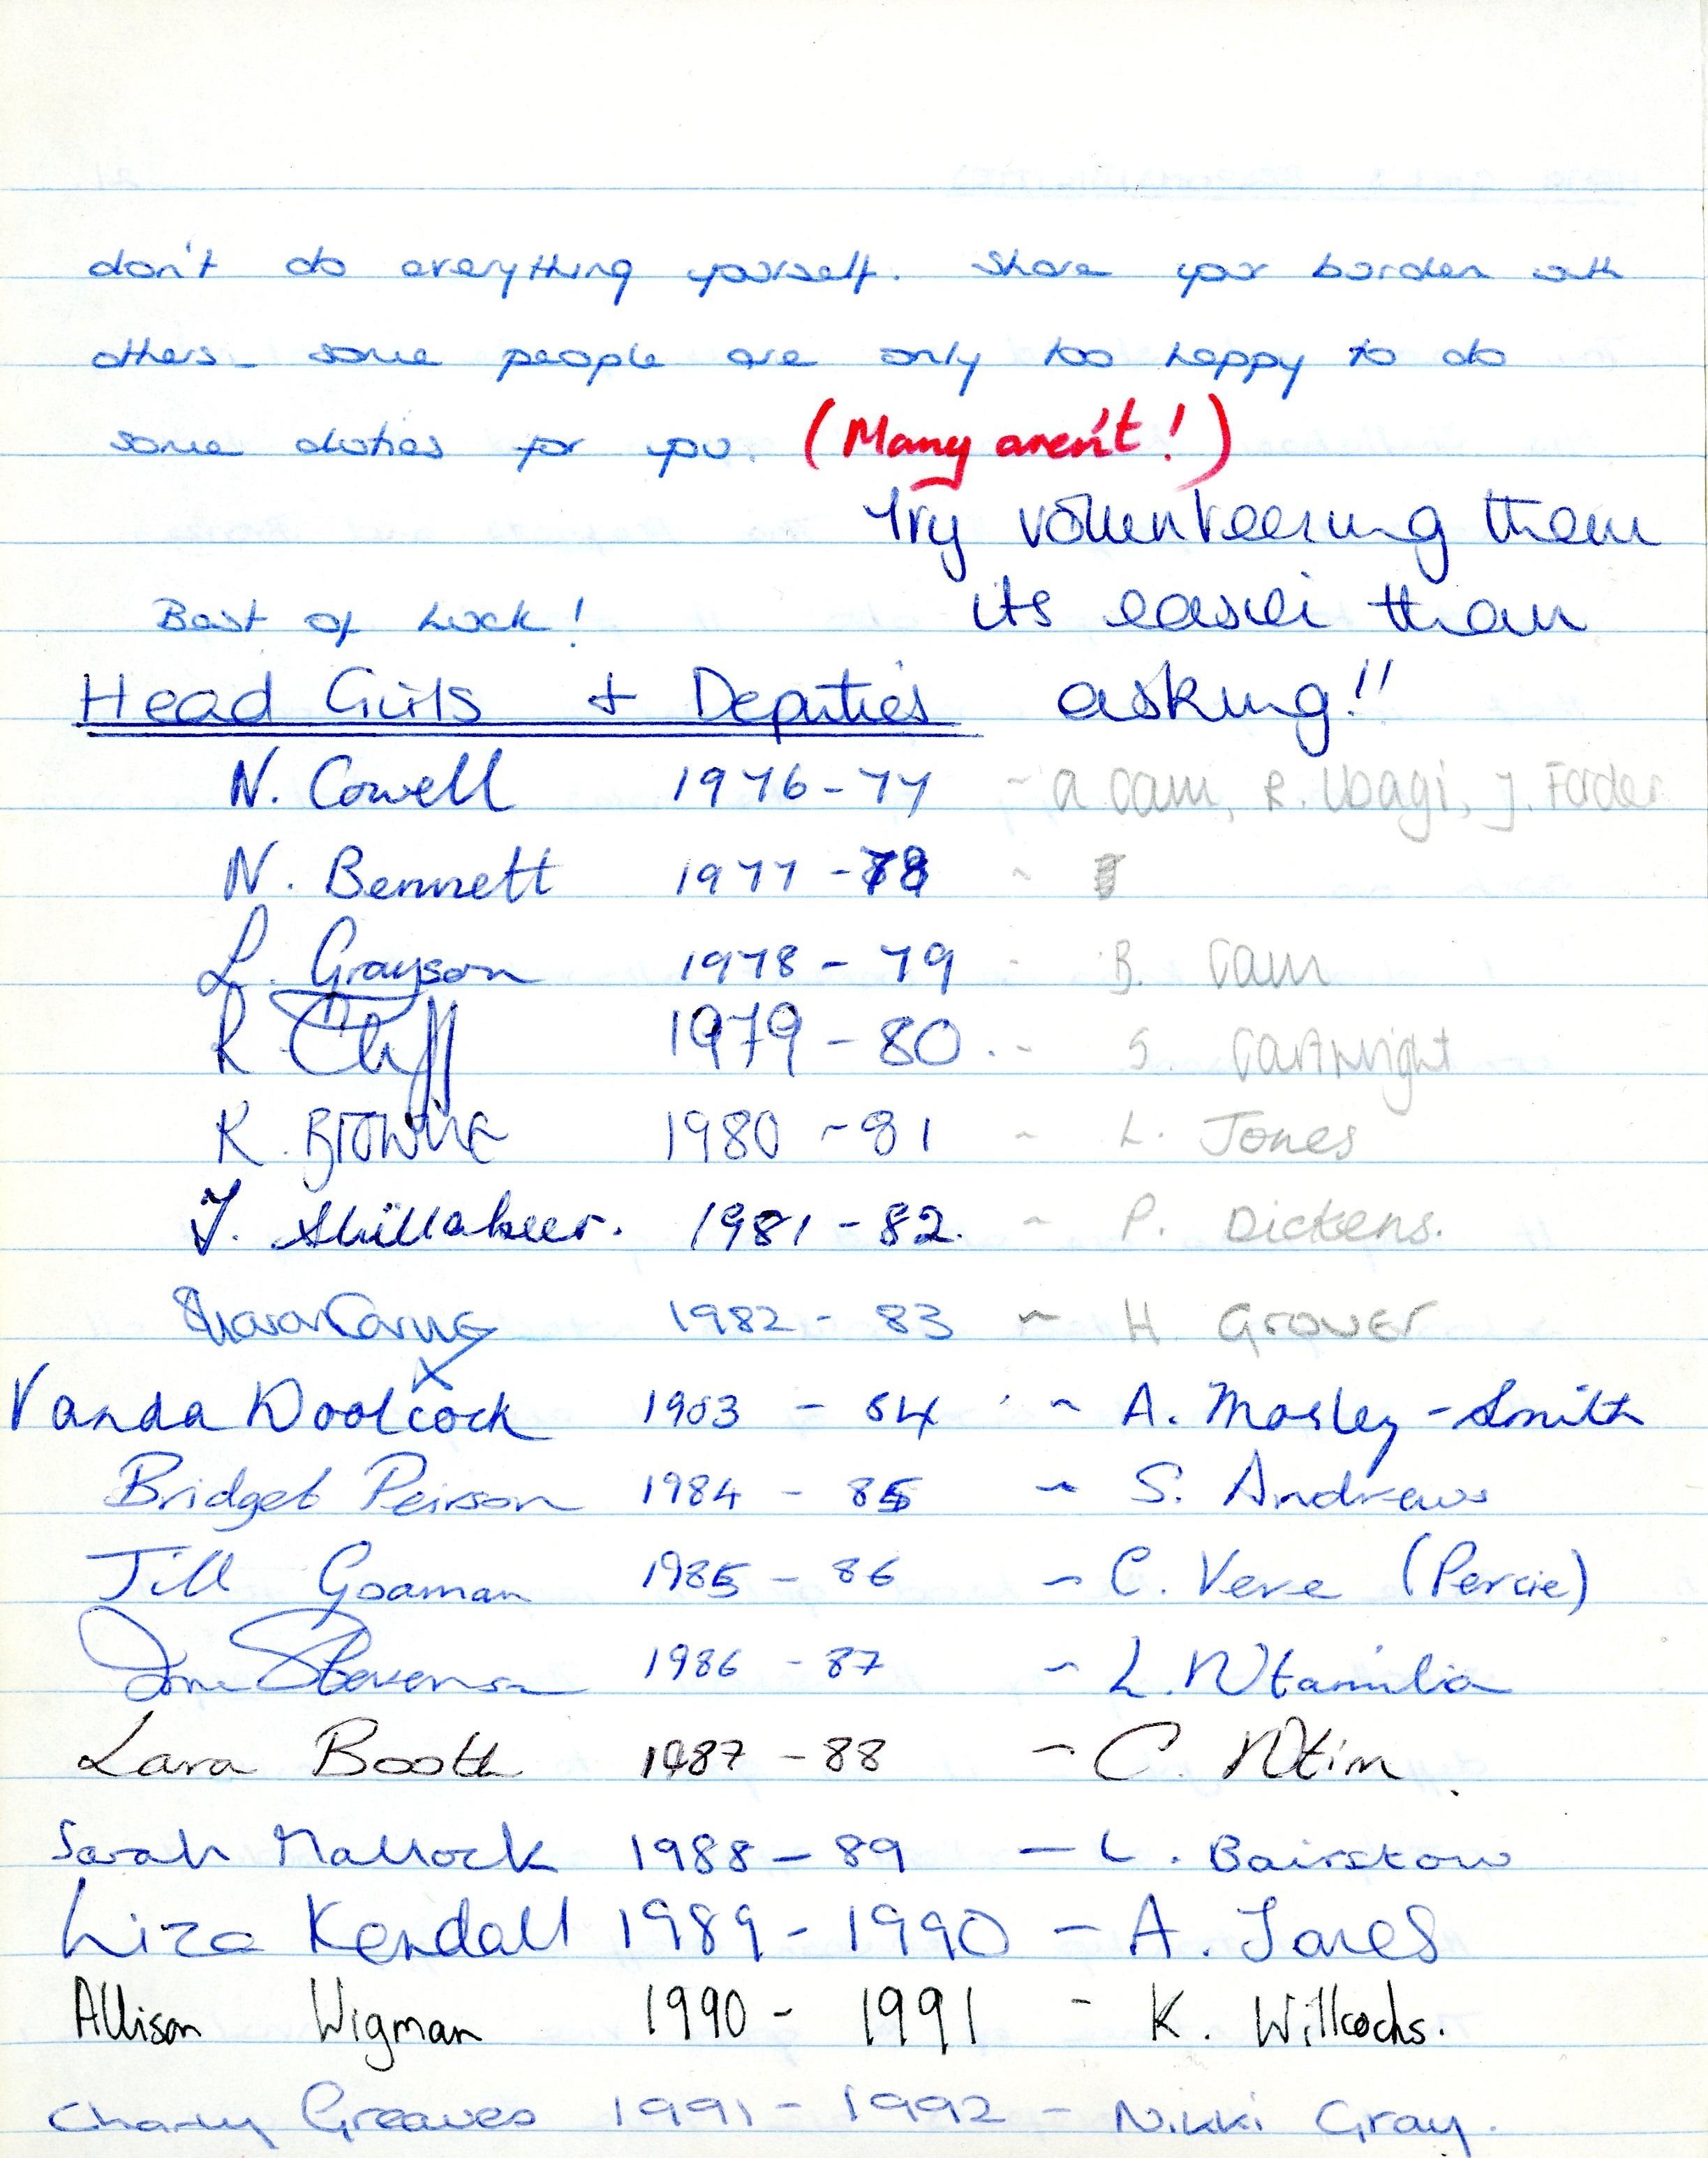 don't do everything yourself. Share your burden with
others - some people are only too happy to do
some duties for you. (Many aren't!)
Try volunteering them
its easier than
asking!!
Best of Luck!
Head Girls + Deputies
N. Cowell 1976-77 - A Cam, R. Ubagi, J. Forder
N. Bennett 1977-78 -
L. Grayson 1978-79 - B. Cam
R Cliff 1979-80. - S. Cartwright
K. Browne 1980-81 - L. Jones
J. Shillabeer. 1981-82. - P. Dickens.
1982-83 - H. Grover
Vanda Woolcock 1983-84 - A. Mosley-Smith
Bridget Peirson 1984-85 - S. Andrews
Jill Goaman 1985-86 - C. Vere (Percie)
Stevenson 1986-87 - L. Ntamila
Lara Booth 1987-88 - C. Ntim
Sarah Mallock 1988-89 - L. Bairstow
Liza Kendall 1989-1990 - A. Jones
Allison Wigman 1990-1991 - K. Willcocks.
Charly Greaves 1991-1992 - Nikki Gray.